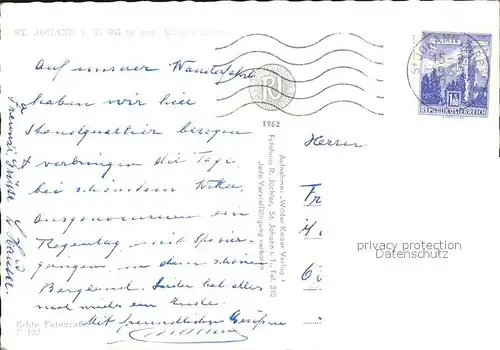 ST. JOHANN i. T. 665 m zum Wilden Kaiser
Auf unserer Wanderfahrt
haben wir hier
Standquartier bezogen
verbringen die Tage
bei schönstem Wetter.
Ausgenommen ein
Regentag mit Spazier-
gängen in dem schönen
Bergland. Leider hat alles
mal wieder ein Ende.
Mit freundlichen Grüßen
Freundl. Grüße
Echte Fotografie
F 192
1962
Aufnahme: „Wilder Kaiser Verlag"
Fotohaus R. Jöchler, St. Johann i. T., Tel. 315
Jede Vervielfältigung verboten
Herrn
Fr
ST. JOHANN
15-
REPUBLIK ÖSTERREICH
privacy protection
Datenschutz